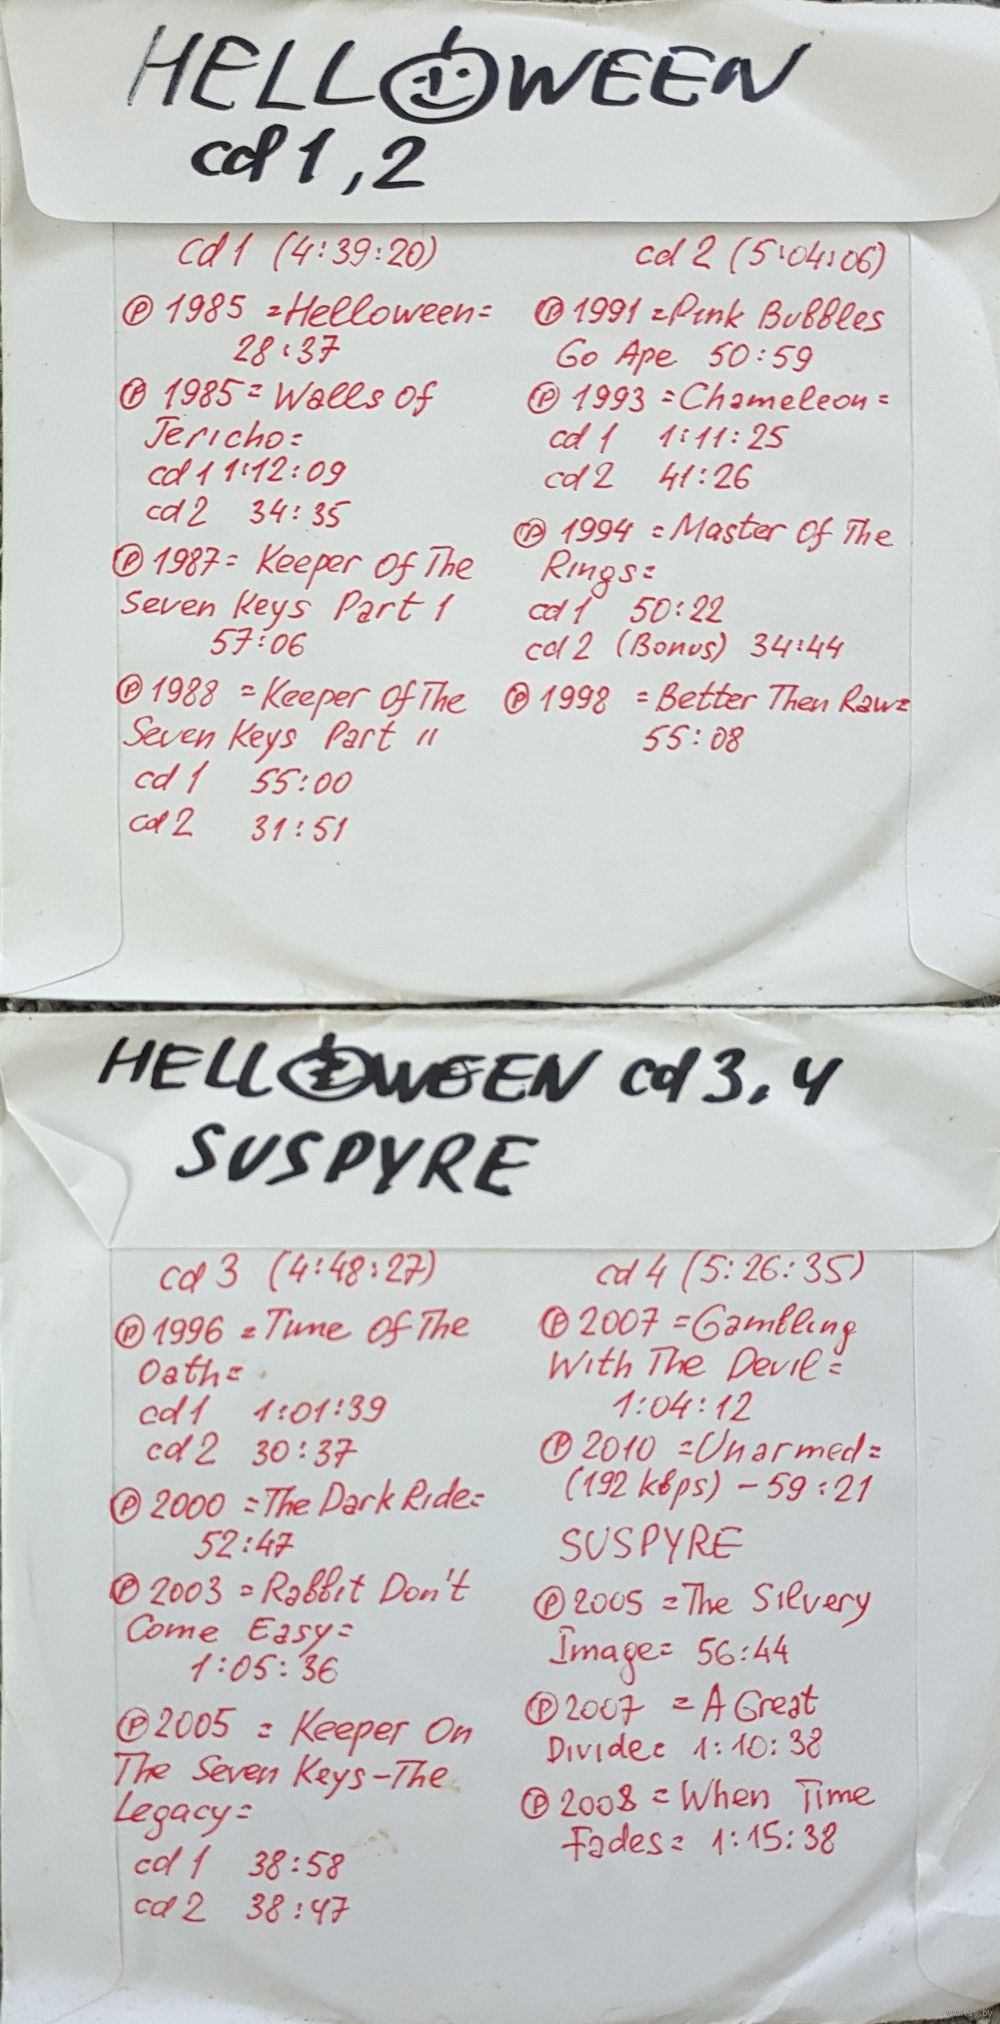 HELLOWEEN
cd 1, 2
cd 1 (4:39:20)
Ⓟ 1985 =Helloween=
28:37
Ⓟ 1985= Walls Of
Jericho=
cd 1 1:12:09
cd 2 34:35
Ⓟ 1987= Keeper Of The
Seven Keys Part 1
57:06
Ⓟ 1988 =Keeper Of The
Seven Keys Part II
cd 1 55:00
cd 2 31:51
cd 2 (5:04:06)
Ⓟ 1991 =Pink Bubbles
Go Ape 50:59
Ⓟ 1993 =Chameleon=
cd 1 1:11:25
cd 2 41:26
Ⓟ 1994 =Master Of The
Rings=
cd 1 50:22
cd 2 (Bonus) 34:44
Ⓟ 1998 =Better Then Raw=
55:08
HELLOWEEN cd 3, 4
SUSPYRE
cd 3 (4:48:27)
Ⓟ 1996 =Time Of The
Oath=
cd 1 1:01:39
cd 2 30:37
Ⓟ 2000 =The Dark Ride=
52:47
Ⓟ 2003 =Rabbit Don't
Come Easy=
1:05:36
Ⓟ 2005 = Keeper On
The Seven Keys-The
Legacy=
cd 1 38:58
cd 2 38:47
cd 4 (5:26:35)
Ⓟ 2007 =Gambling
With The Devil=
1:04:12
Ⓟ 2010 =Unarmed=
(192 kbps) - 59:21
SUSPYRE
Ⓟ 2005 =The Silvery
Image= 56:44
Ⓟ 2007 =A Great
Divide= 1:10:38
Ⓟ 2008 =When Time
Fades= 1:15:38